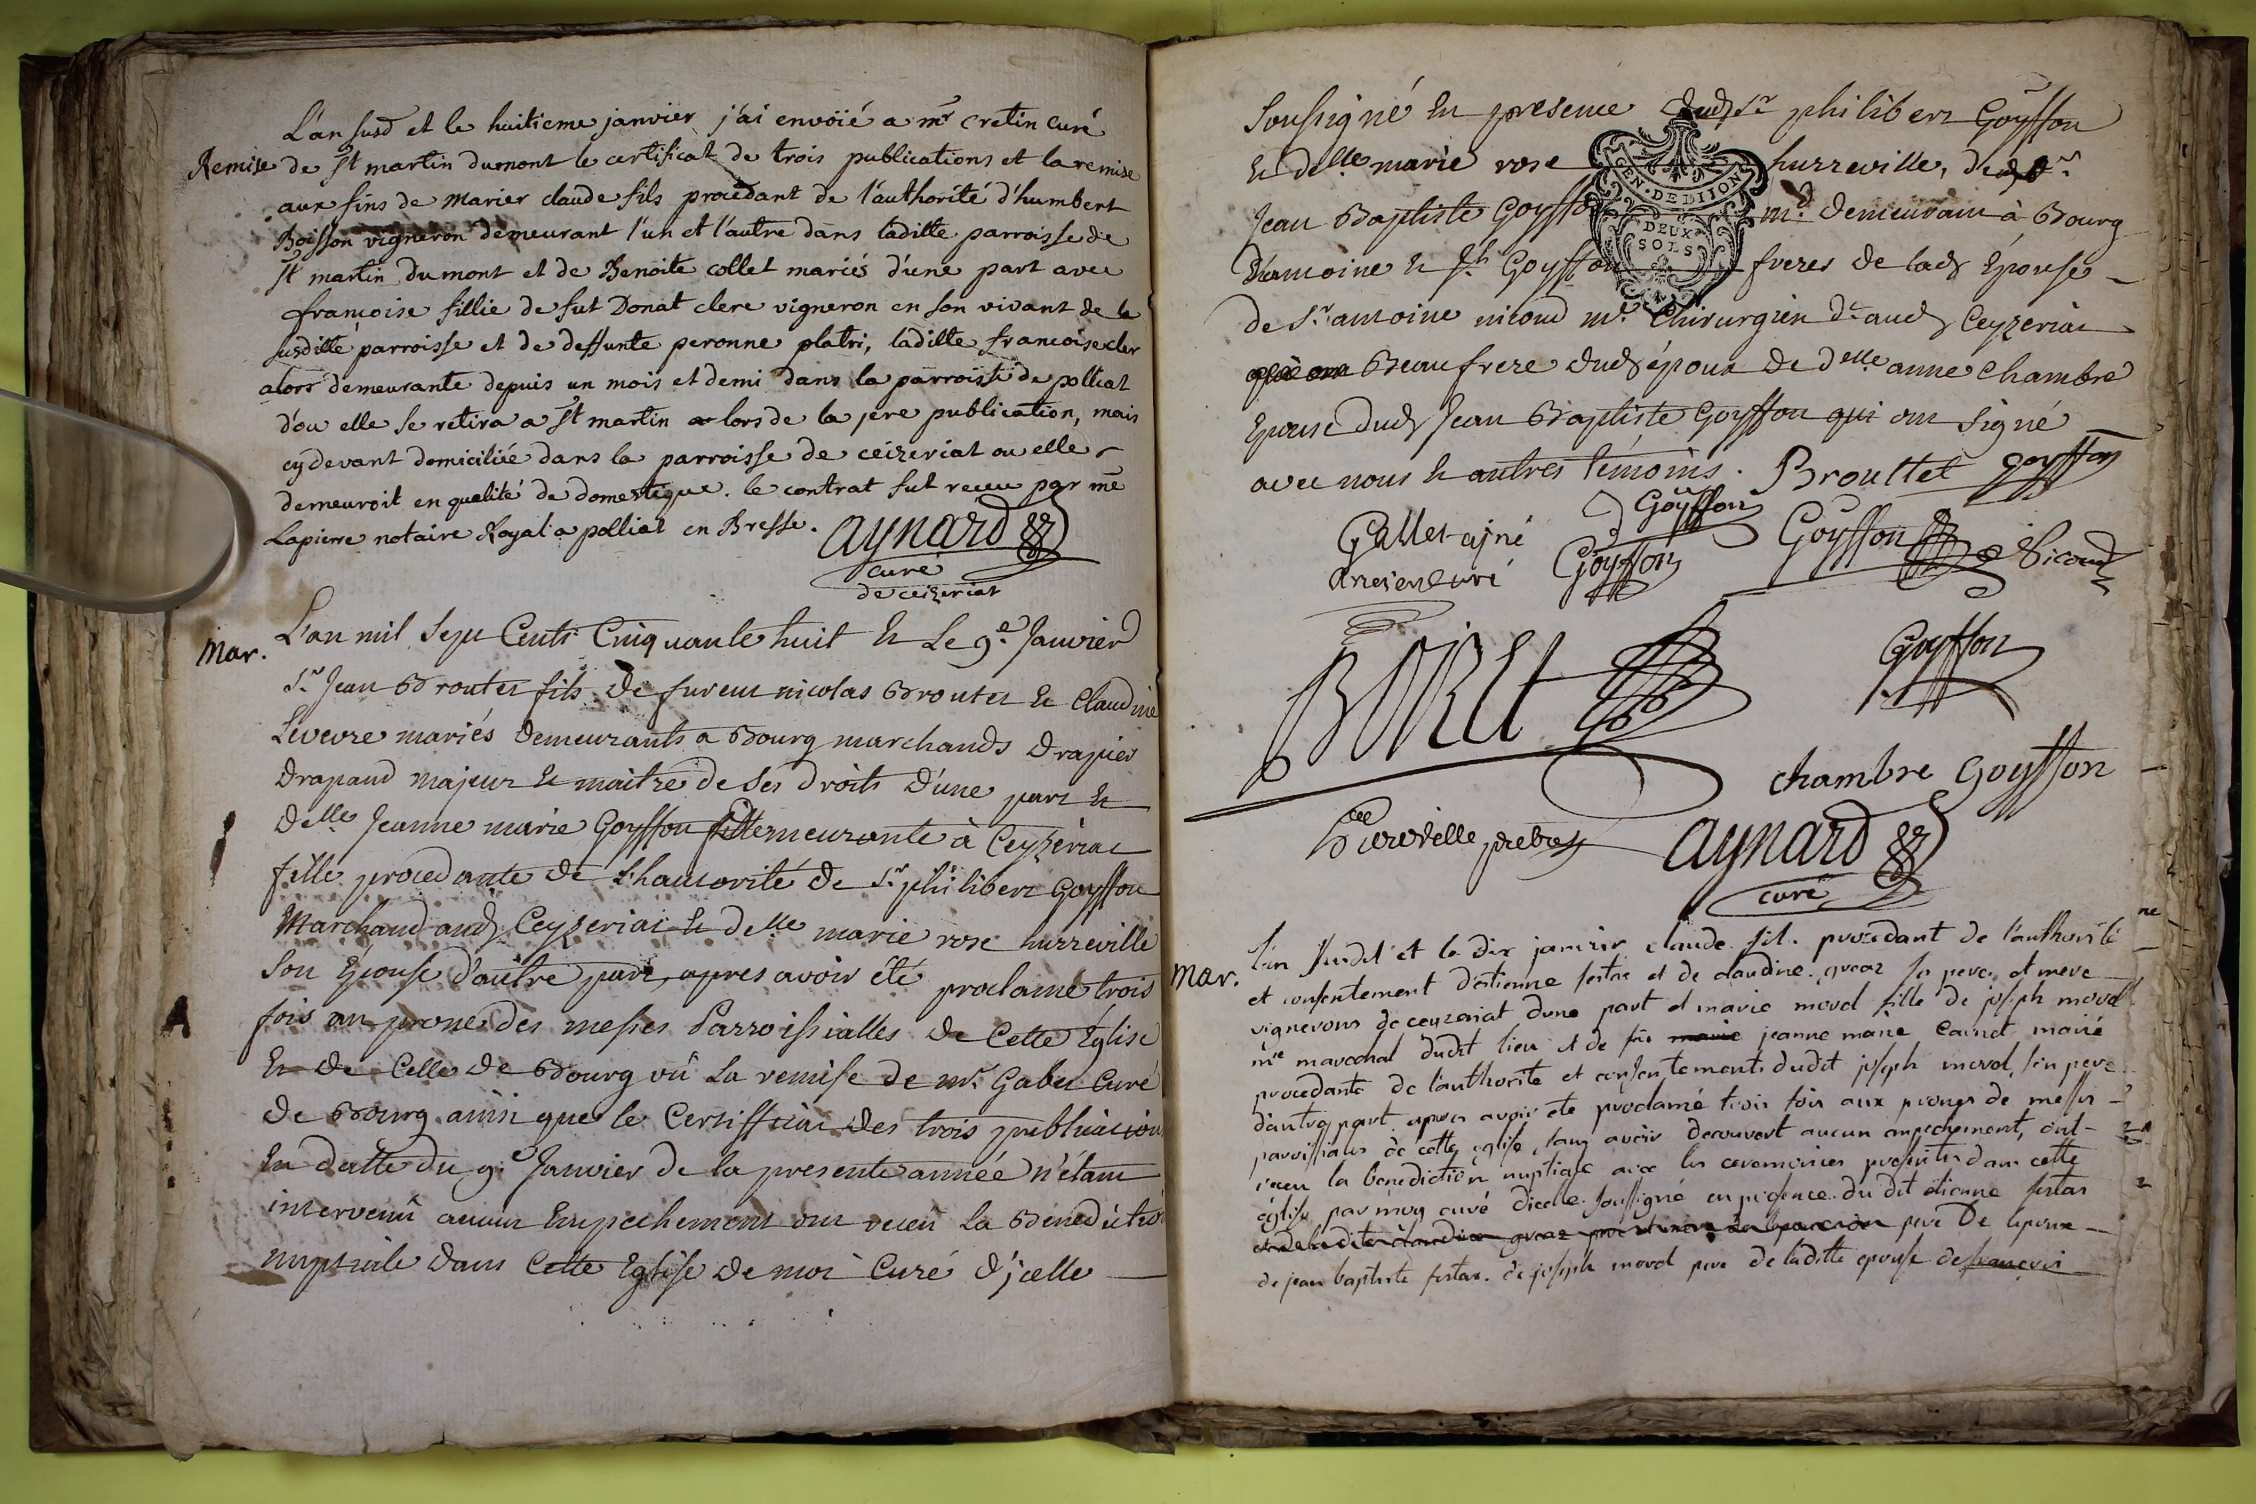 L'an susd et le huitieme janvier j'ai envoïé a mr cretin curé
Remise de St martin dumont le certificat de trois publications et la remise
aux fins de marier claude fils procédant de l'authorité d'humbert
Boisson vigneron demeurant l'un et l'autre dans laditte parroisse de
St martin dumont et de Benoite collet mariés d'une part avec
francoise fillie de fut Donat clere vigneron en son vivant de la
susditte parroisse et de deffunte peronne platri, laditte francoise cler
alors demeurante depuis un mois et demi dans la parroisse de polliat
d'ou elle se retira a St martin lors de la 1ere publication, mais
cydevant domiciliée dans la parroisse de ceizeriat ou elle
demeuroit en qualité de domestique. le contrat fut receu par me
Lapierre notaire Royal a polliat en Bresse. aynard
curé
de ceizeriat
mar. L'an mil sept Cents Cinquante huit et Le 9e Janvier
Sr Jean Broutet fils de furent nicolas Broutet et Claudine
Levevre mariés demeurants a Bourg marchands drapier
drapaud majeur et maitre de ses droits d'une part et
delle Jeanne marie Goyffon demeurante à Ceyzeriat
fille procedante de L'hautorité de Sr philibert Goyffon
Marchand aud Ceyzeriat et delle marie rose hurreville
Son Epouse d'autre part, apres avoir été proclamé trois
fois au prone des messes Parroissialles de Cette Eglise
Et de Celle de Bourg vû La remise de mr Gabet Curé
de Bourg ainsi que le Certifficat des trois publication
En datte du 9e Janvier de la presente année n'étant
intervenû aucun Empechement ont receû La Benediction
nuptiale dans Cette Eglise de moi Curé d'jcelle
Soussigné En presence dud Sr philibert Goyffon
Et delle marie rose hurreville, de Sr
Jean Baptiste Goyffon md demeurant à Bourg
D'antoine et Jh Goyffon freres de lad Epouse
de Sr antoine nicoud me Chirurgien aud Ceyzeriat
Beaufrere dud époux de delle anne Chambre
Epouse dud Jean Baptiste Goyffon qui ont Signé
avec nous et autres témoins. Brouttet goyffon
Goyffon
Gallet ainé Goyffon Goyffon Nicoud
Ancien Curé
BORET Goyffon
chambre Goyffon
hurevelle prebre aynard
curé
mar. L'an susdit et le dix janvier claude fils procedant de l'authorité
et consentement d'etienne et de claudine ses pere et mere
vignerons de ceyzeriat d'une part et marie morel fille de joseph morel
me marechal dudit lieu et de jeanne marie marié
procedante de l'authorité et consentement dudit joseph morel, son pere
d'autre part, apres avoir été proclamé trois fois aux prones de messes
paroissiales de cette eglise, sans avoir decouvert aucun empechement, ont
receu la benediction nuptiale avec les ceremonies prescrites dans cette
eglise par moy curé d'icelle soussigné en presence du dit etienne
pere de lepoux
de jean baptiste de joseph morel pere de laditte epouse de francois
GEN. DE DIJON
DEUX
SOLS